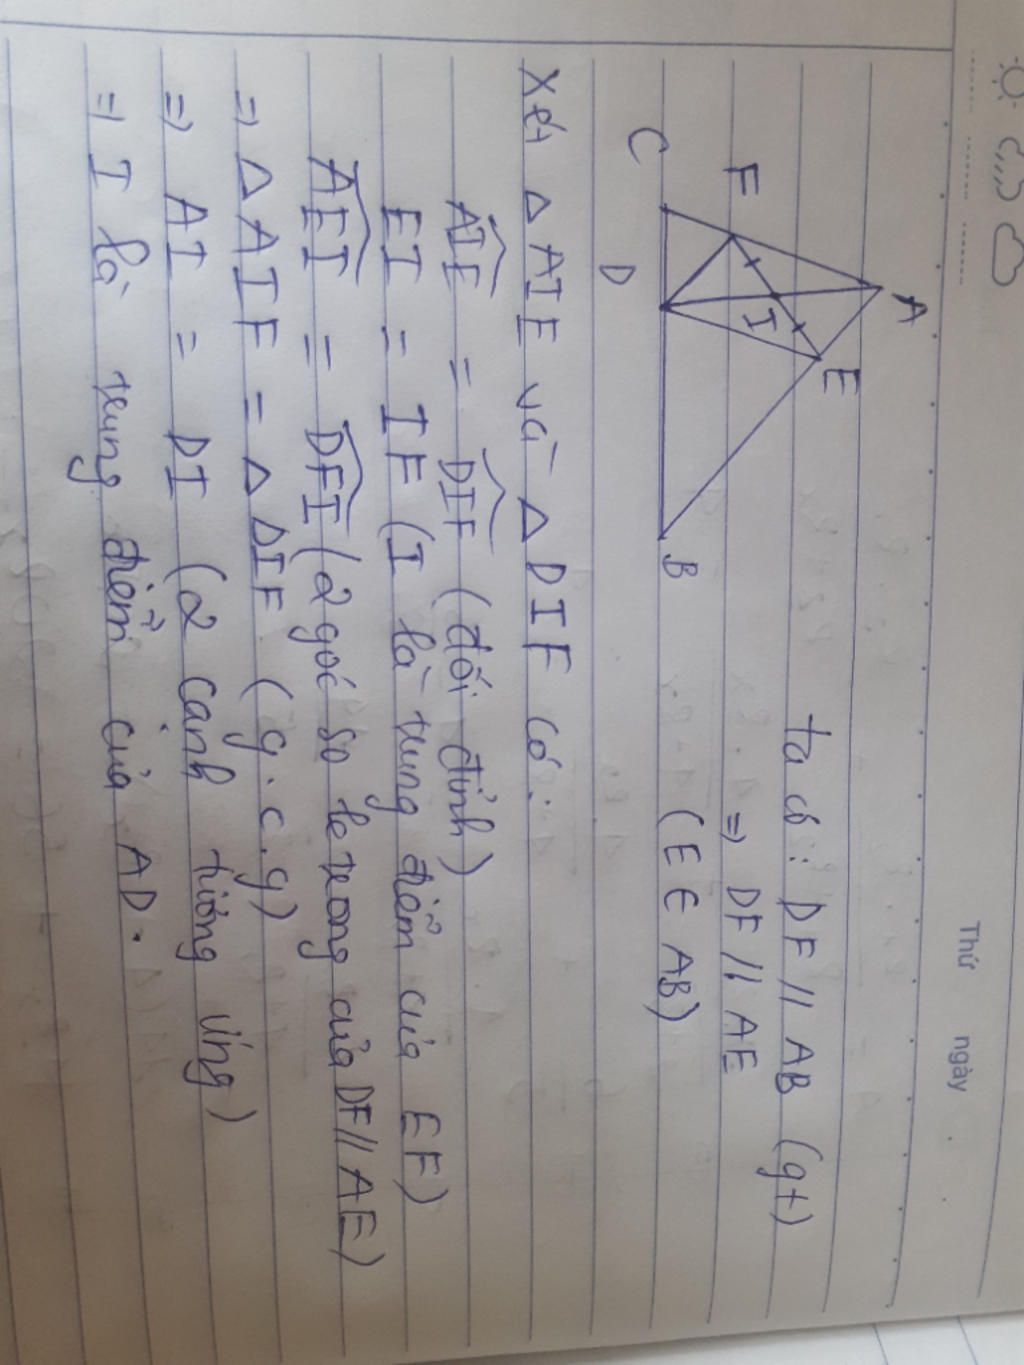 Thứ ngày
A
E
F
I
C
D
B
ta có : DF // AB (gt)
=> DF // AE
(E ∈ AB)
Xét △ AIE và △ DIF có :
AIE = DIF (đối đỉnh)
EI = IF (I là trung điểm của EF)
AEI = DFI (2 góc so le trong của DF // AE)
=> △ AIE = △ DIF (g.c.g)
=> AI = DI (2 cạnh tương ứng)
=> I là trung điểm của AD.